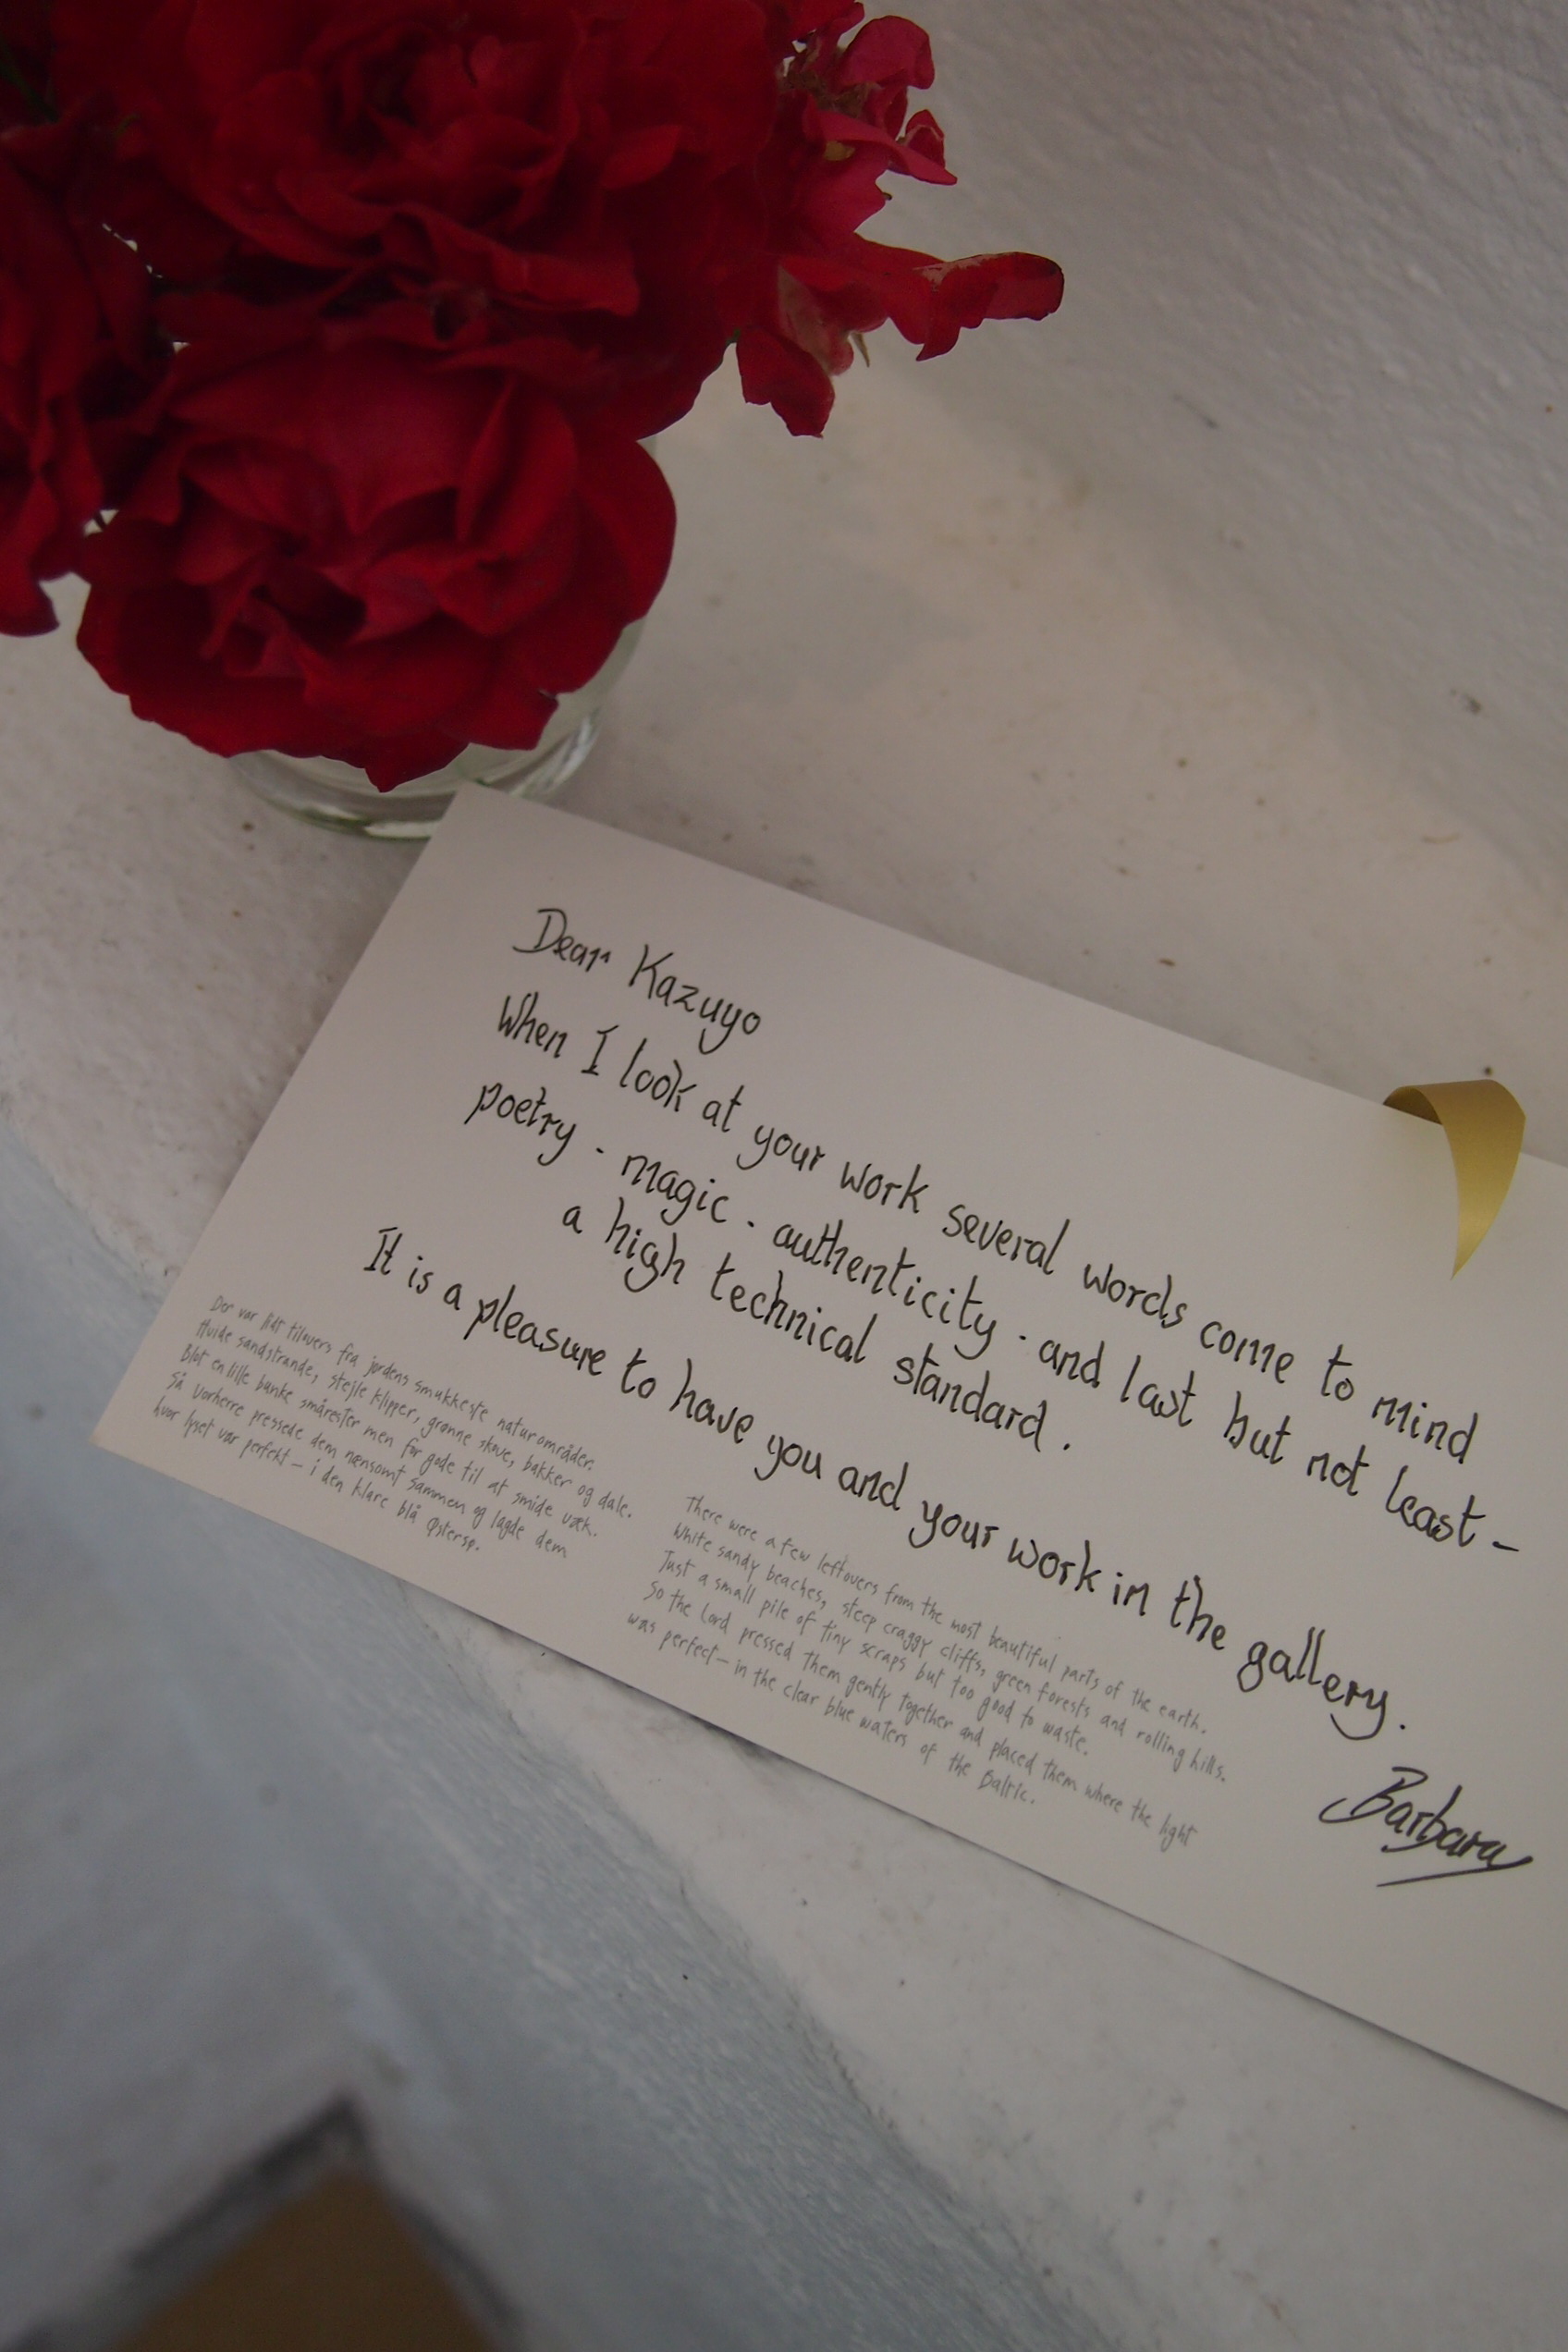 Dear Kazuyo
When I look at your work several words come to mind
poetry · magic · authenticity · and last but not least –
a high technical standard.
It is a pleasure to have you and your work in the gallery.
Barbara
Der var lidt tilovers fra jordens smukkeste naturområder.
Hvide sandstrande, stejle klipper, grønne skove, bakker og dale.
Blot en lille bunke smårester men for gode til at smide væk.
Så Vorherre pressede dem nænsomt sammen og lagde dem
hvor lyset var perfekt – i den klare blå Østersø.
There were a few leftovers from the most beautiful parts of the earth.
White sandy beaches, steep craggy cliffs, green forests and rolling hills.
Just a small pile of tiny scraps but too good to waste.
So the Lord pressed them gently together and placed them where the light
was perfect – in the clear blue waters of the Baltic.